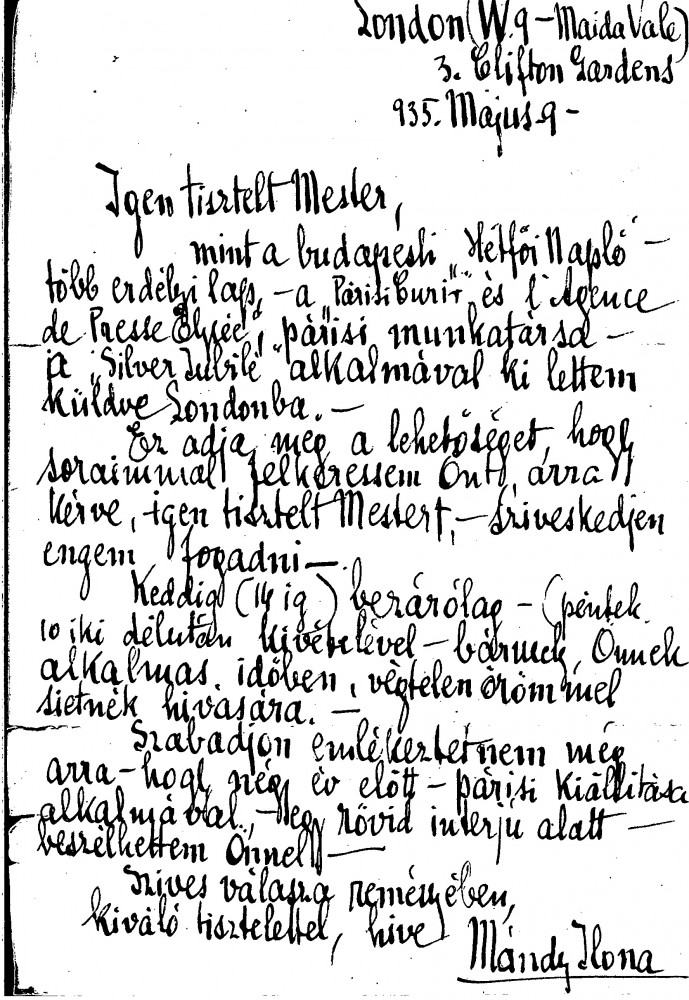 London (W.9 – Maida Vale)
3. Clifton Gardens
935. Május 9 –
Igen tisztelt Mester,
mint a budapesti „Hétfői Napló" –
több erdélyi lap, – a „Párisi Curir" és l'Agence
de Presse Elysée", párisi munkatársa –
a „Silver Jubilé" alkalmával ki lettem
küldve Londonba. –
Ez adja meg a lehetőséget, hogy
soraimmal felkeressem Önt, arra
kérve, igen tisztelt Mestert, – sziveskedjen
engem fogadni –.
Keddig (14 ig) bezárólag – (péntek
10 iki délután kivételével – bármely, Önnek
alkalmas időben, végtelen örömmel
sietnék hivására. –
Szabadjon emlékeztetnem még
arra – hogy négy év előtt – párisi kiállitása
alkalmával, – egy rövid interjú alatt –
beszélhettem Önnel –
Szives válasza reményében,
kiváló tisztelettel, hive
Mándy Ilona